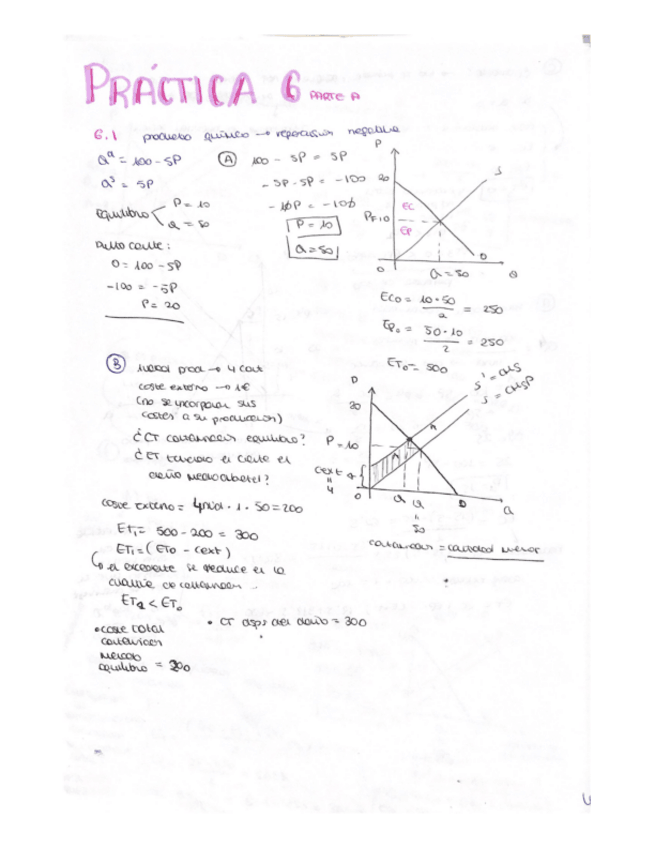 PRÁCTICA 6 PARTE A
6.1 producto químico → repercusión negativa
Qᵈ = 100 - 5P
Qˢ = 5P
equilibrio
P = 10
Q = 50
Punto corte:
0 = 100 - 5P
-100 = -5P
P = 20
A
100 - 5P = 5P
-5P - 5P = -100
-10P = -100
P = 10
Q = 50
P
20
P=10
EC
EP
S
D
0
Q = 50
Q
EC₀ = 10·50 / 2 = 250
EP₀ = 50·10 / 2 = 250
ET₀ = 500
B
coste externo → 1€
(no se incorporan sus
costes a su producción)
¿CT contaminación equilibrio?
¿ET teniendo en cuenta el
daño medioambiental?
coste externo = 4 · 1 · 50 = 200
ET₁ = 500 - 200 = 300
ET₁ = (ET₀ - Cext)
el excedente se reduce en la
cuantía de contaminación
ET₁ < ET₀
• coste total
contaminación
mercado
equilibrio = 200
• ET desp del daño = 300
P
20
P = 10
Cext
4
0
S' = CMS
S = CMgP
D
Q
Q
Q
50
contaminación = cantidad menor